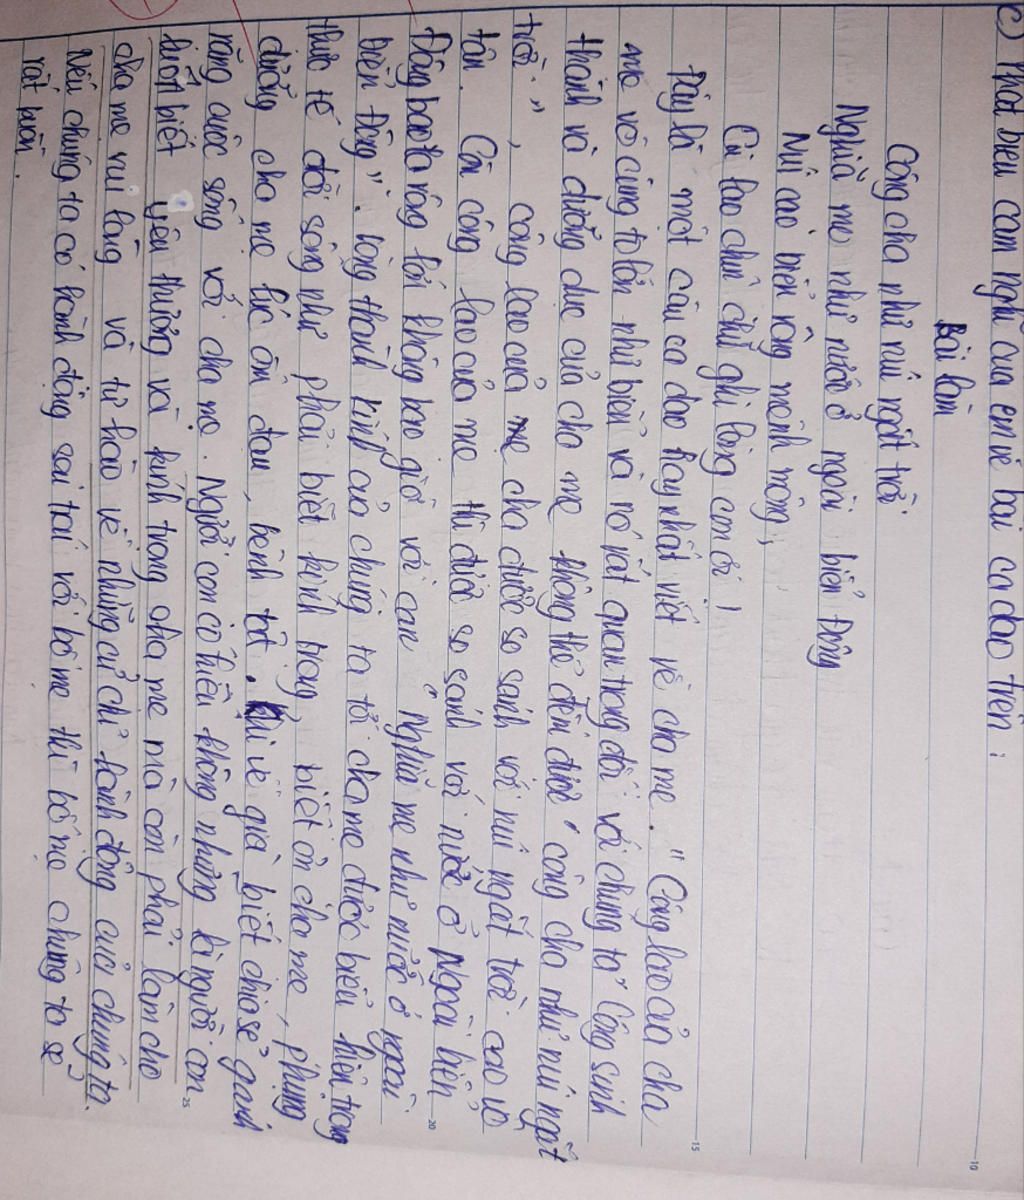 c) Phát biểu cảm nghĩ của em về bài ca dao trên:
Bài làm
Công cha như núi ngất trời
Nghĩa mẹ như nước ở ngoài biển Đông
Núi cao biển rộng mênh mông,
Cù lao chín chữ ghi lòng con ơi!
Đây là một câu ca dao hay nhất viết về cha mẹ. "Công lao của cha
mẹ vô cùng to lớn như biển và nó rất quan trọng đối với chúng ta" Công sinh
thành và dưỡng dục của cha mẹ không thể đếm được "công cha như núi ngất
trời", công lao của cha được so sánh với núi ngất trời cao vô
tận. Còn công lao của mẹ thì được so sánh với nước ở ngoài biển
Đông bao la rộng lớn không bao giờ vơi cạn "Nghĩa mẹ như nước ở ngoài
biển Đông". Lòng thành kính của chúng ta tới cha mẹ được biểu hiện trong
thực tế đời sống như phải biết kính trọng, biết ơn cha mẹ, phụng
dưỡng cha mẹ lúc ốm đau, bệnh tật. Khi về già biết chia sẻ gánh
nặng cuộc sống với cha mẹ. Người con có hiếu không những là người con
luôn biết yêu thương và kính trọng cha mẹ mà còn phải làm cho
cha mẹ vui lòng và tự hào về những cử chỉ hành động của chúng ta.
Nếu chúng ta có hành động sai trái với bố mẹ thì bố mẹ chúng ta sẽ
rất buồn.